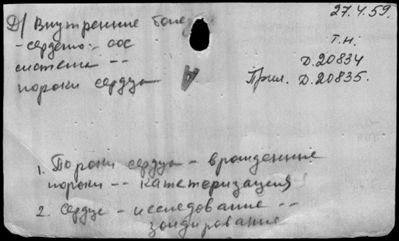 Д/ Внутренние боле
27.4.59.
- сердечно-сос
система --
пороки сердца
Т.н.
Д.20834
Прил. Д.20835.
1. Пороки сердца - врожденные
пороки -- катетеризация
2. Сердце - исследование --
зондирование